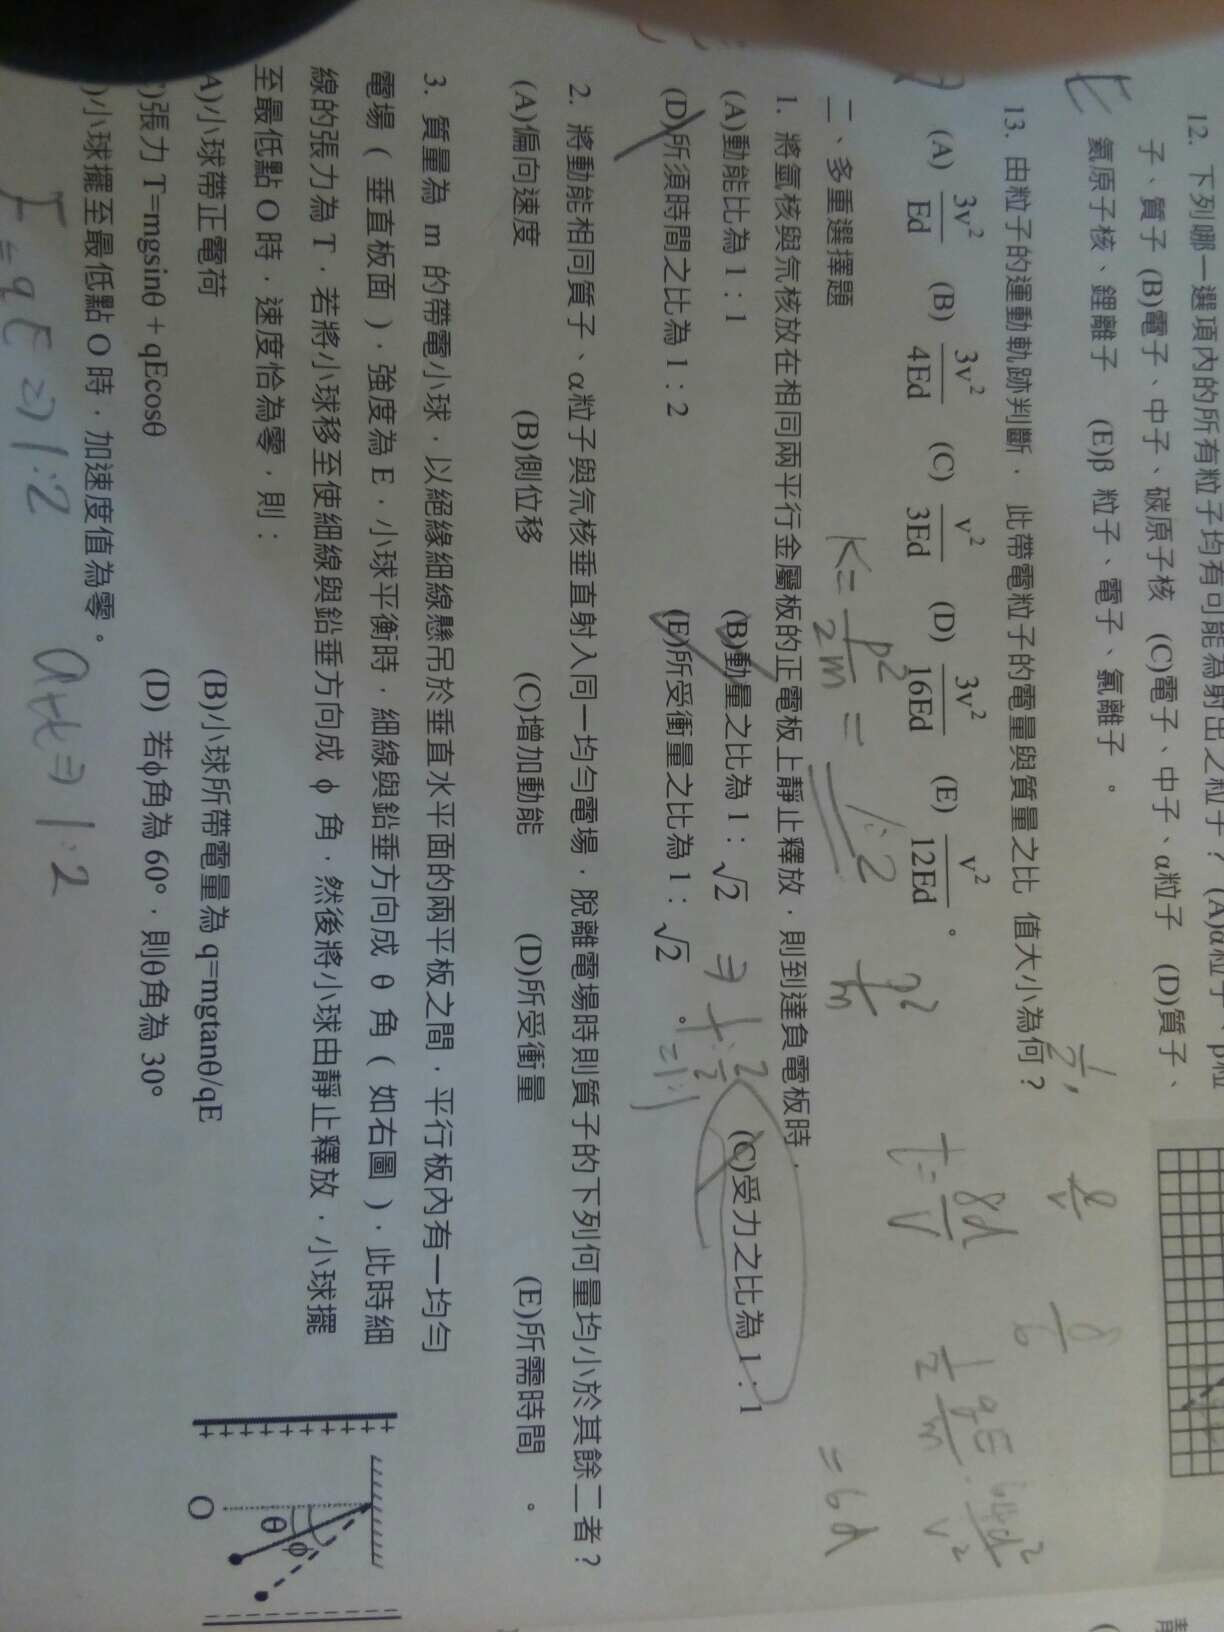 12. 下列哪一選項內的所有粒子均有可能為射出之粒子？ (A)α粒子、β粒
子、質子 (B)電子、中子、碳原子核 (C)電子、中子、α粒子 (D)質子、
氦原子核、鋰離子 (E)β 粒子、電子、氯離子 。
13. 由粒子的運動軌跡判斷，此帶電粒子的電量與質量之比 值大小為何？
(A) 3v²/Ed (B) 3v²/4Ed (C) v²/3Ed (D) 3v²/16Ed (E) v²/12Ed 。
二、多重選擇題
K = p²/2m = 1:2
t = 8d/v
= 6d
1. 將氫核與氘核放在相同兩平行金屬板的正電板上靜止釋放，則到達負電板時，
(A)動能比為 1：1 (B)動量之比為 1：√2 (C)受力之比為 1：1
(D)所須時間之比為 1：2 (E)所受衝量之比為 1：√2 。
2. 將動能相同質子、α粒子與氘核垂直射入同一均勻電場，脫離電場時則質子的下列何量均小於其餘二者？
(A)偏向速度 (B)側位移 (C)增加動能 (D)所受衝量 (E)所需時間 。
3. 質量為 m 的帶電小球，以絕緣細線懸吊於垂直水平面的兩平板之間，平行板內有一均勻
電場（ 垂直板面 ），強度為 E，小球平衡時，細線與鉛垂方向成 θ 角（ 如右圖 ），此時細
線的張力為 T，若將小球移至使細線與鉛垂方向成 φ 角，然後將小球由靜止釋放，小球擺
至最低點 O 時，速度恰為零，則：
A)小球帶正電荷 (B)小球所帶電量為 q=mgtanθ/qE
)張力 T=mgsinθ + qEcosθ (D) 若φ角為 60°，則θ角為 30°
)小球擺至最低點 O 時，加速度值為零。
θ φ
O
F = qE ⇒ 1:2